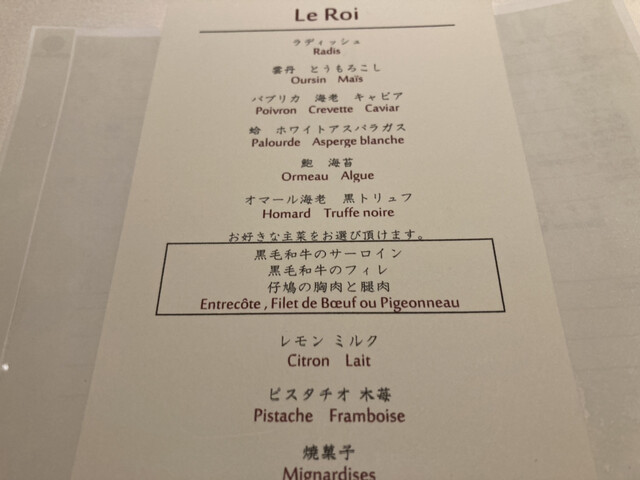 Le Roi
ラディッシュ
Radis
雲丹 とうもろこし
Oursin Maïs
パプリカ 海老 キャビア
Poivron Crevette Caviar
蛤 ホワイトアスパラガス
Palourde Asperge blanche
鮑 海苔
Ormeau Algue
オマール海老 黒トリュフ
Homard Truffe noire
お好きな主菜をお選び頂けます。
黒毛和牛のサーロイン
黒毛和牛のフィレ
仔鳩の胸肉と腿肉
Entrecôte , Filet de Bœuf ou Pigeonneau
レモン ミルク
Citron Lait
ピスタチオ 木苺
Pistache Framboise
焼菓子
Mignardises